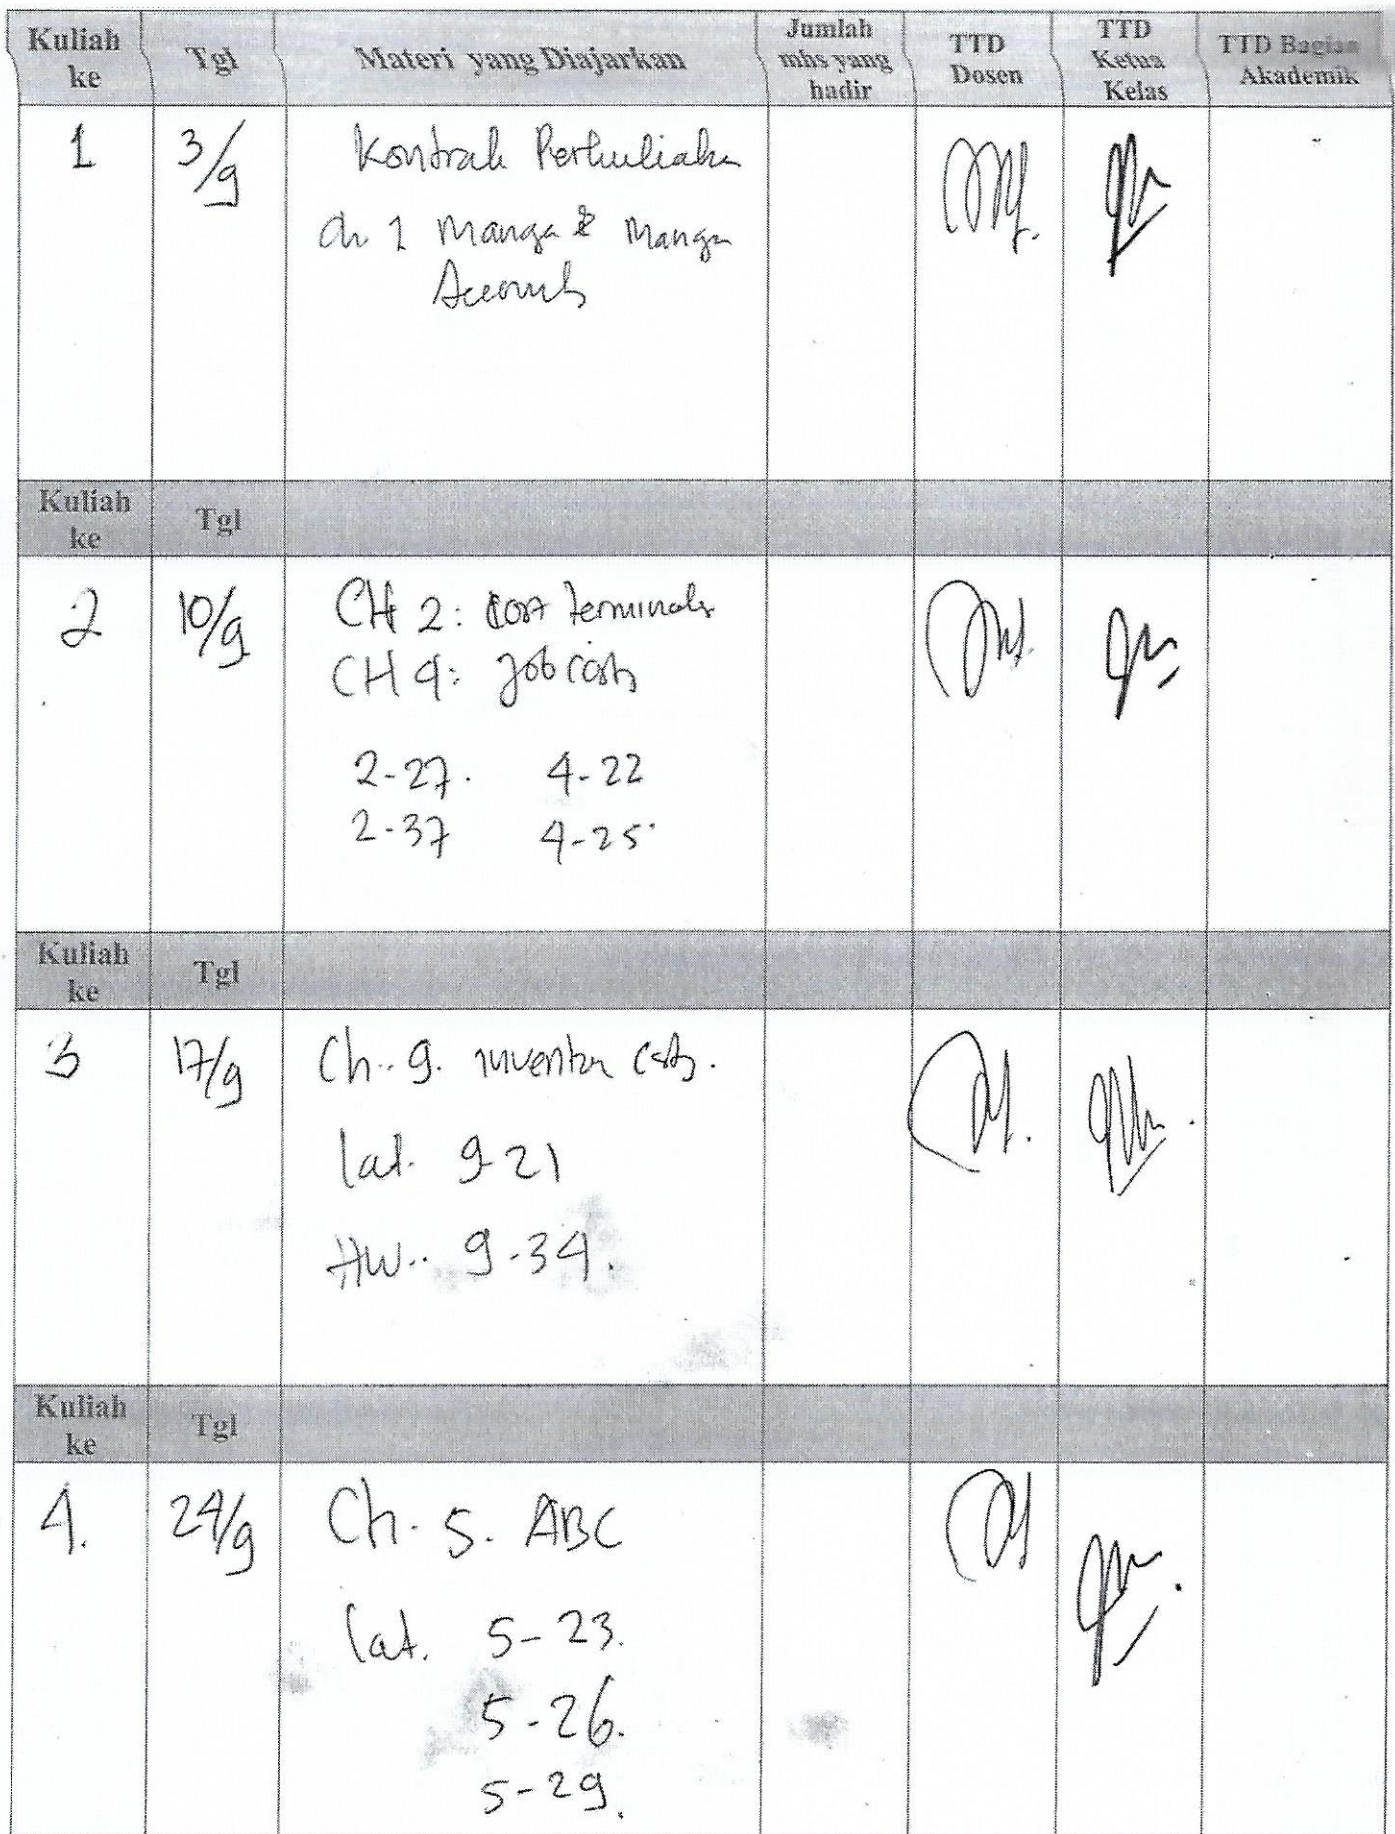 Kuliah ke Tgl Materi yang Diajarkan Jumlah mhs yang hadir TTD Dosen TTD Ketua Kelas TTD Bagian Akademik
1 3/9 Kontrak Perkuliahan
Ch 1 Manga & Manga
Accounts
Kuliah ke Tgl
2 10/9 CH 2: Cost terminals
CH 4: Job Costs
2-27. 4-22
2-37 4-25
Kuliah ke Tgl
3 17/9 Ch. 9. Inventor Costs.
lat. 9-21
HW.. 9-34.
Kuliah ke Tgl
4. 24/9 Ch. 5. ABC
lat. 5-23.
5-26.
5-29.